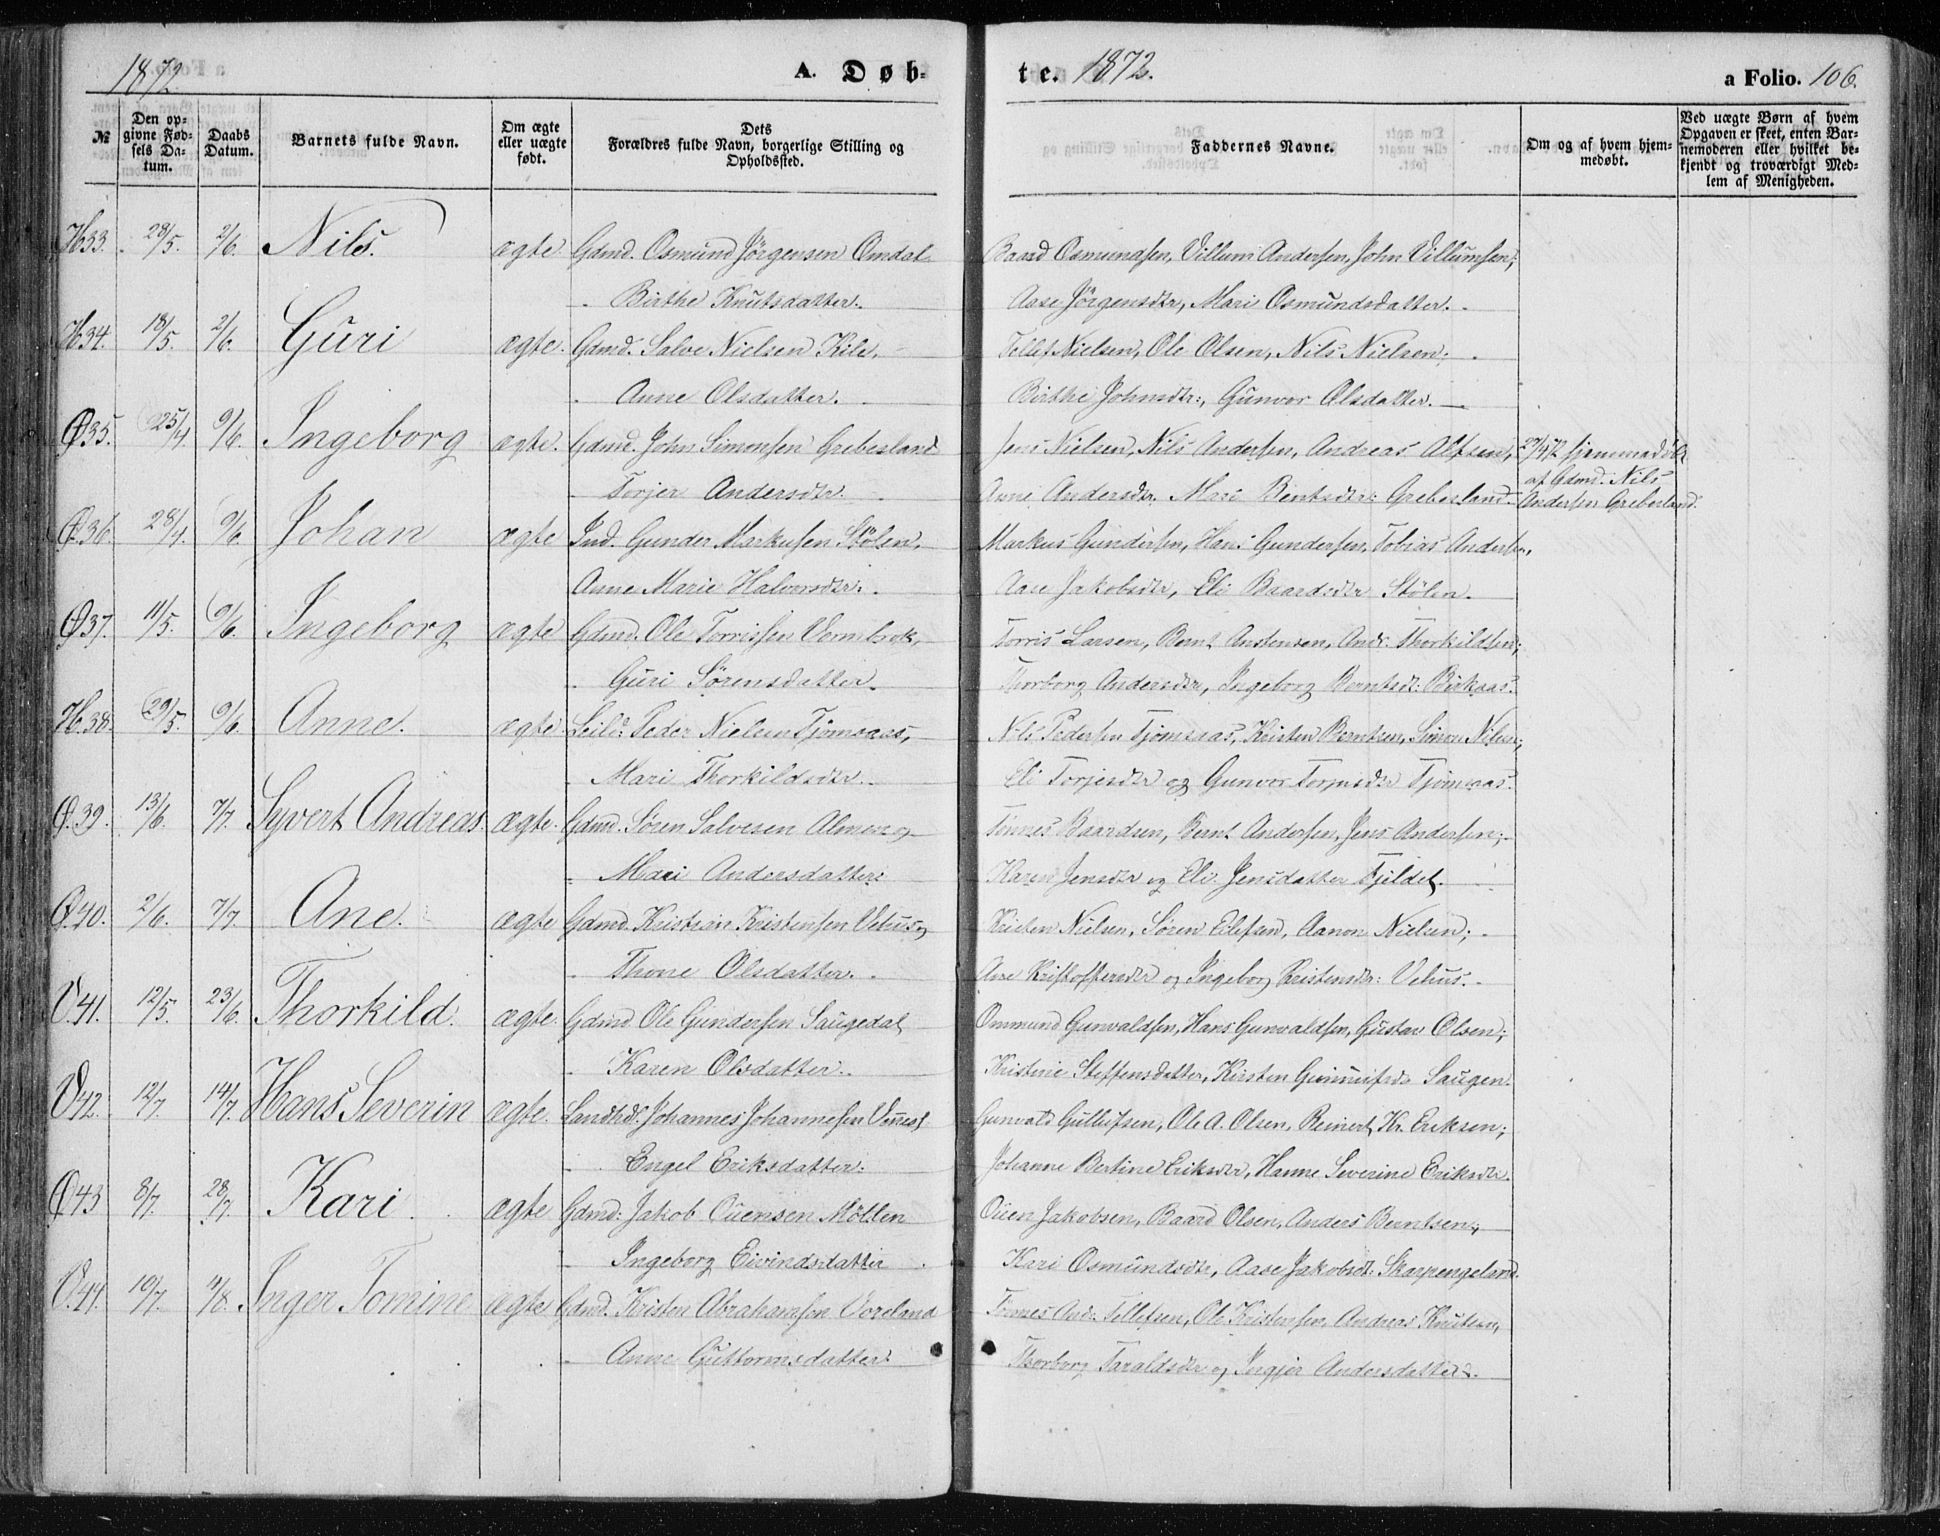 1872. A. Døb-
te. 1872. a Folio. 106.
№ Den opgivne Fødsels Datum. Daabs Datum. Barnets fulde Navn. Om ægte eller uægte født. Dets Forældres fulde Navn, borgerlige Stilling og Opholdssted. Faddernes Navne. Om og af hvem hjemmedøbt. Ved uægte Børn af hvem Opgaven er skeet, enten Barnemoderen eller hvilket bekjendt og troværdigt Medlem af Menigheden.
H33. 28/5. 2/6. Nils. ægte. Gdmd. Osmund Jörgensen Omdal Baard Osmundsen, Villum Andersen, John Villumsen;
Birthe Knutsdatter. Aase Jörgensdtr, Mari Osmundsdatter.
H34. 18/5. 2/6. Guri ægte. Gdmd. Salve Nielsen Kile. Tellef Nielsen, Ole Olsen, Nils Nielsen;
Anne Olsdatter. Birthe Johnsdtr:, Gunvor Olsdatter.
Ø35. 25/4. 9/6. Ingeborg ægte. Gdmd. John Simonsen Grebesland Jens Nielsen, Nils Andersen, Andreas Alfsen, 27/4 72 hjemmedöbt
af Gdmd. Nils
Torjer Andersdtr. Anne Andersdtr. Mari Berntsdtr: Grebesland. Andersen Grebesland.
Ø36. 28/4. 9/6. Johan ægte Ind. Gunder Markusen Stölen. Markus Gundersen, Hans Gundersen, Tobias Andersen,
Anne Marie Halvorsdtr. Aase Jakobsdtr, Eli Baardsdtr Stölen.
Ø37. 11/5. 9/6. Ingeborg ægte Gdmd. Ole Torrissen Torris Larsen, Bernt Anstensen, Andr. Thorkildsen;
Guri Sörensdatter. Thorborg Andersdtr, Ingeborg Berntsdt: Birkaas.
H38. 29/5. 9/6. Anne. ægte. Leild: Peder Nielsen Tjömsaas, Nils Pedersen Tjömsaas, Kristen Berntsen, Simon Nilsen;
Mari Thorkildsdtr. Eli Torjesdtr og Gunvor Torjusdtr Tjömsaas.
Ø.39. 13/6. 7/7. Syvert Andreas. ægte. Gdmd. Sören Salvesen Almen og Tönnes Baardsen, Bernt Andersen, Jens Andersen;
Mari Andersdatter: Karen Jensdtr og Eli Jensdatter Fjeldet.
Ø.40. 2/6. 7/7. Ane. ægte Gdmd. Kristian Kristensen Vehus og Kristen Nielsen, Sören Eilefsen, Aanon Nielsen;
Thone Olsdatter. Ane Kristoffersdtr og Ingeborg Kristensdtr: Vehus.
V.41. 12/5. 23/6. Thorkild. ægte. Gdmd Ole Gundersen Saugedal Ommund Gunvaldsen, Hans Gunvaldsen, Gustav Olsen;
Karen Olsdatter. Kristine Steffensdatter, Kirsten Saugen.
V42. 12/7. 14/7. Hans Severin ægte. Johannes Johannesen Gunvald Gullufsen, Ole A. Olsen, Reinert Kr. Eriksen;
Engel Eriksdatter. Johanne Bertine Eriksdtr, Hanne Severine Eriksdtr.
Ø43 8/7. 28/7. Kari ægte Gdmd: Jakob Ouensen Möllen Ouen Jakobsen, Baard Olsen, Anders Berntsen;
Ingeborg Eivindsdatter. Kari Osmundsdtr, Aase Jakobsdt: Skarpengeland.
V.44. 10/7. 4/8. Inger Tomine ægte Gdmd. Kristen Abrahamsen Voreland Tönnes Andr. Tellefsen, Ole Kristensen, Andreas Knutsen,
Anne Guttormsdatter. Thorborg Taraldsdtr og Ingjer Andersdatter.